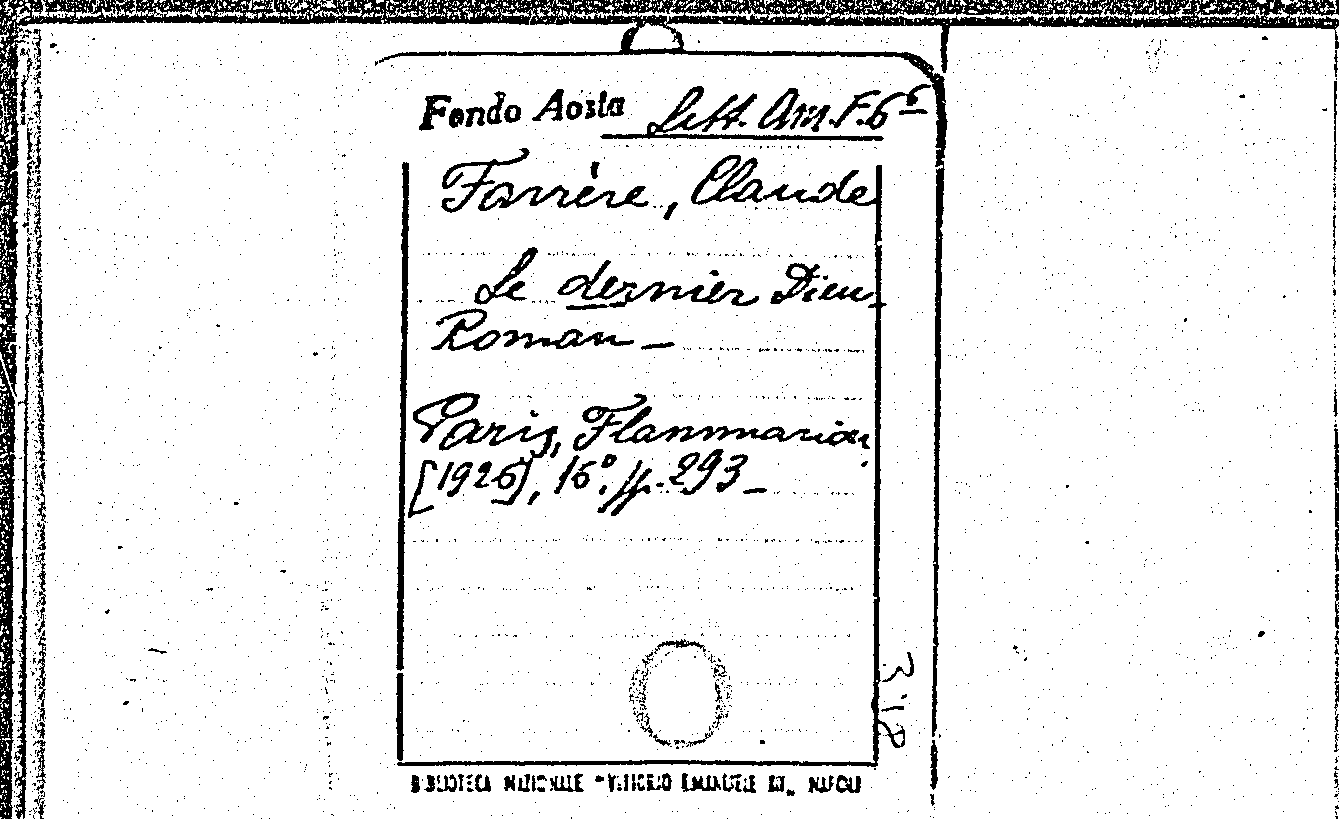 Fondo Aosta Lett. Am. F. 6⁶
Farrère, Claude
Le dernier Dieu.
Roman —
Paris, Flammarion,
[1926], 16°. pp. 293 —
BIBLIOTECA NAZIONALE "VITTORIO EMANUELE III„ NAPOLI